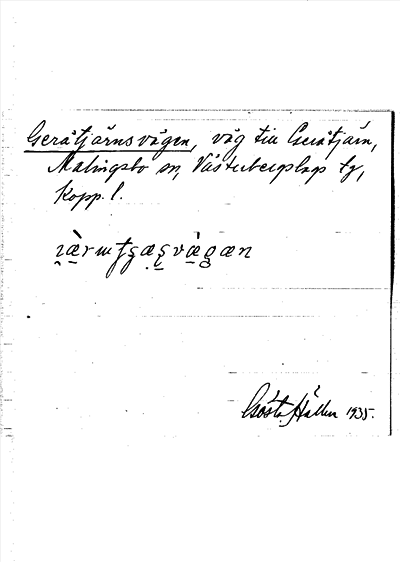 Geråtjärnsvägen, väg till Geråtjärn,
Malingsbo sn, Västerbergslags tg,
Kopp. l.
Gösta Hallen 1935.